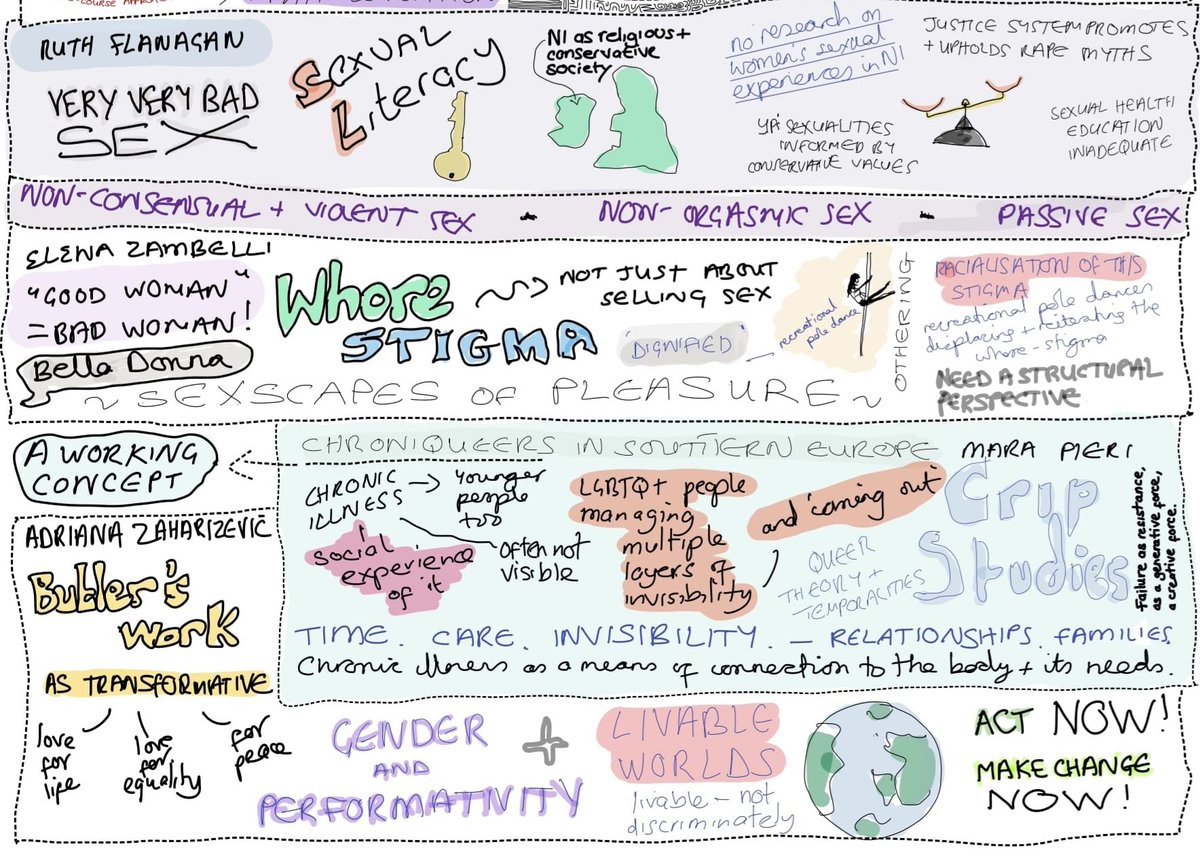 RUTH FLANAGAN
VERY VERY BAD
SEX
Sexual
Literacy
NI as religious +
conservative
society
no research on
women's sexual
experiences in NI
YP'S SEXUALITIES
INFORMED BY
CONSERVATIVE VALUES
JUSTICE SYSTEM PROMOTES
+ UPHOLDS RAPE MYTHS
SEXUAL HEALTH
EDUCATION
INADEQUATE
NON-CONSENSUAL + VIOLENT SEX - NON-ORGASMIC SEX - PASSIVE SEX
ELENA ZAMBELLI
"GOOD WOMAN"
= BAD WOMAN!
Bella Donna
Whore
STIGMA
NOT JUST ABOUT
SELLING SEX
'DIGNIFIED'
recreational
pole dance
OTHERING
RACIALISATION OF THIS
STIGMA
recreational pole dances
displacing + reiterating the
whore-stigma
NEED A STRUCTURAL
PERSPECTIVE
~ SEXSCAPES OF PLEASURE ~
A WORKING
CONCEPT
CHRONIQUEERS IN SOUTHERN EUROPE MARA PIERI
CHRONIC
ILLNESS
Younger
people
too
social
experience
of it
Often not
visible
LGBTQ+ people
managing
multiple
layers of
invisibility
and 'coming out'
QUEER
THEORY +
TEMPORALITIES
Crip
Studies
Failure as resistance,
as a generative force,
a creative force.
TIME. CARE. INVISIBILITY. — RELATIONSHIPS. FAMILIES.
Chronic illness as a means of connection to the body + its needs.
ADRIANA ZAHARIZEVIC
Butler's
work
AS TRANSFORMATIVE
love
for
life
love
for
equality
for
peace
GENDER
AND
PERFORMATIVITY
+
LIVABLE
WORLDS
livable - not
discriminately
ACT NOW!
MAKE CHANGE
NOW!